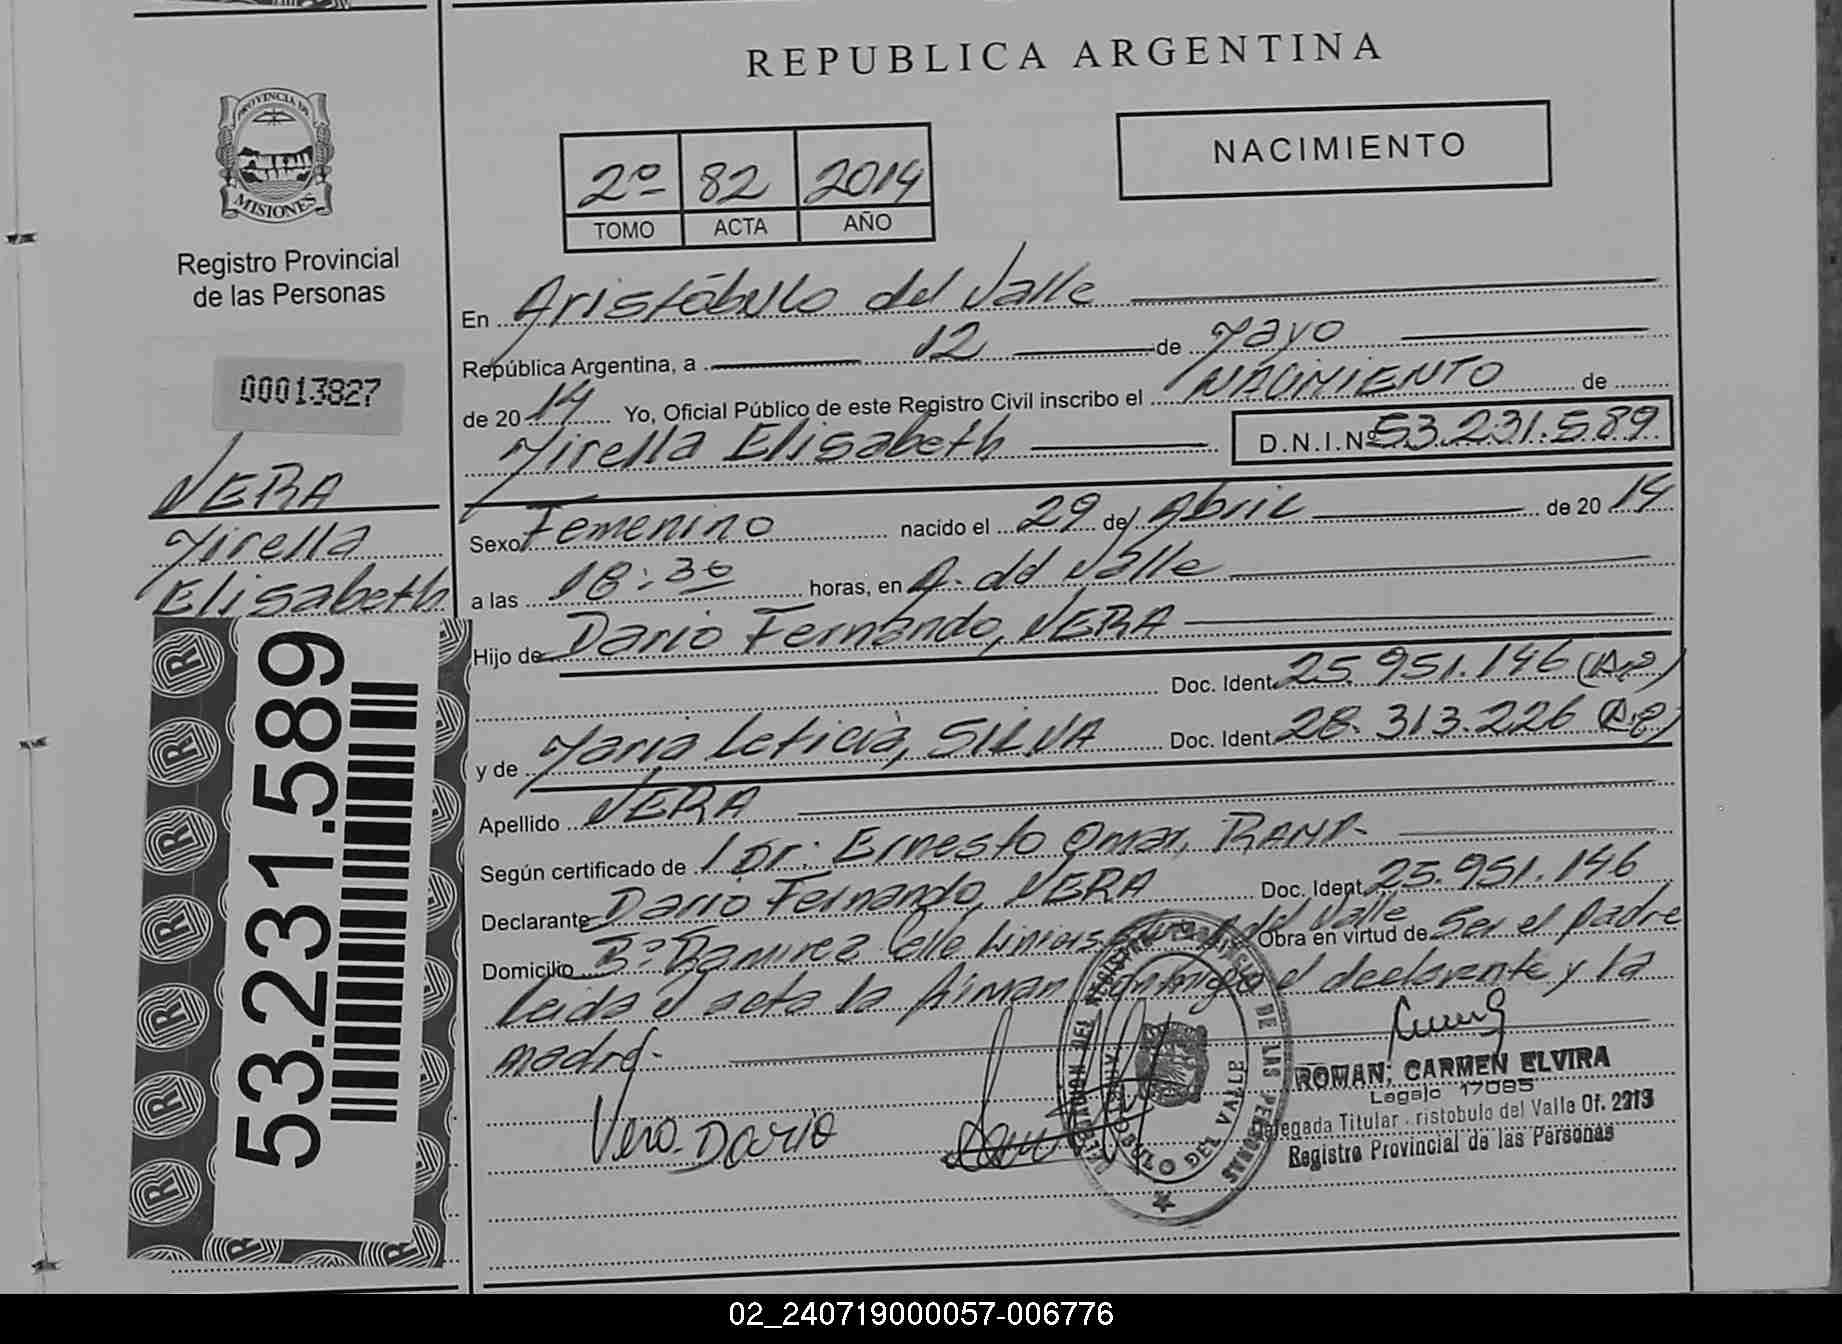 REPUBLICA ARGENTINA
NACIMIENTO
2º 82 2014
TOMO ACTA AÑO
PROVINCIA DE
MISIONES
Registro Provincial
de las Personas
00013827
VERA
Mirella
Elisabeth
53.231.589
En Aristóbulo del Valle
República Argentina, a 12 de Mayo
de 2014 Yo, Oficial Público de este Registro Civil inscribo el NACIMIENTO de
Mirella Elisabeth D.N.I.Nº 53.231.589
Sexo Femenino nacido el 29 de Abril de 2014
a las 18:30 horas, en A. del Valle
Hijo de Dario Fernando, VERA
Doc. Ident. 25.951.146 (Arg)
y de Maria Leticia, SILVA Doc. Ident. 28.313.226 (Arg)
Apellido VERA
Según certificado de Dr: Ernesto Omar,
Declarante Dario Fernando, VERA Doc. Ident. 25.951.146
Domicilio Bº Ramirez Calle Liniers A. del Valle Obra en virtud de Ser el padre
Leida el acta la firman conmigo el declarante y la
madre.
Vera Dario
DELEGACION DEL REGISTRO PROVINCIAL DE LAS PERSONAS
ARISTOBULO DEL VALLE
ROMAN, CARMEN ELVIRA
Legajo 17085
Delegada Titular - ristobulo del Valle Of. 2213
Registro Provincial de las Personas
02_240719000057-006776